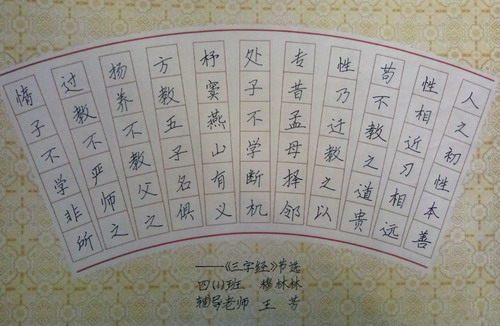 人之初性本善
性相近习相远
苟不教之道贵
性乃迁教之以
专昔孟母择邻
处子不学断机
杼窦燕山有义
方教五子名俱
扬养不教父之
过教不严师之
惰子不学非所
——《三字经》节选
四(1)班 穆林林
辅导老师 王芳